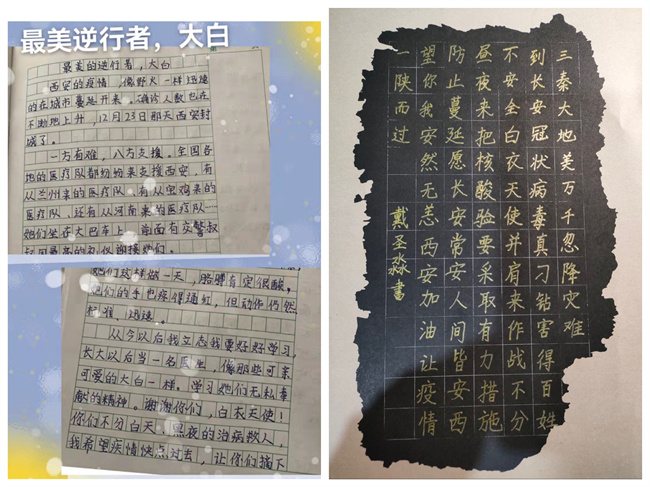 最美逆行者，大白
最美的逆行者，大白
西安的疫情，像野火一样迅速
的在城市蔓延开来。确诊人数也在
不断地上升，12月23日那天西安封
城了。
一方有难，八方支援，全国各
地的医疗队都纷纷来支援西安，有
从兰州来的医疗队、有从宝鸡来的
医疗队，还有从河南来的医疗队……
她们坐在大巴车上，前面有交警叔
她们这样做一天，胳膊肯定很酸，
她们的手也疼得通红，但动作仍然
准、迅速。
从今以后我立志我要好好学习，
长大以后当一名医生，像那些可亲
可爱的大白一样。学习她们无私奉
献的精神。谢谢你们，白衣天使！
你们不分白天、黑夜的治病救人，
我希望疾情快点过去，让你们摘下
三秦大地美万千忽降灾难
到长安冠状病毒真刁钻害得百姓
不安全白衣天使并肩来作战不分
昼夜来把核酸验要采取有力措施
防止蔓延愿长安常安人间皆安西
望你我安然无恙西安加油让疫情
一陕而过
戴圣淼書